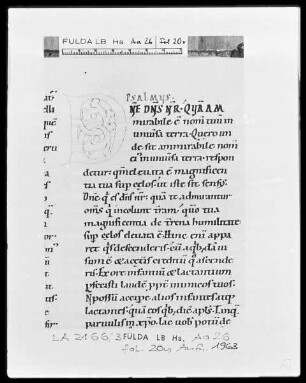 FULDA LB Hs. Aa 26 Fol 20v
Psalmus.
DNE DNS NR. QUAM AM
mirabile e nom tuum in
uniuersa terra. Quero un
de sit ammirabile nom
ei in uniuersa terra. respon
detur. qm eleuata e magnificen
tia tua sup celos. ut iste sit sensus.
Dne. qui es dns nr. qua te admirantur
oms. qui incolunt terram. quo tua
magnificentia de terrena humilitate
sup celos eleuata e. Hinc eni appa
ret quis descenderis. cu a qbda ui
sum e. & a ceteris creditu quo ascende
ris. Ex ore infantiu & lactantium
pfecisti laude. ppt inimicos tuos.
N possu accipe alios infantes atq
lactantes. qua eos qb; dic apls. Tamq
paruulis in xpo. lac uob potu de
LA 2166/3 FULDA LB Hs. Aa 26
fol. 20v Aufn. 1963